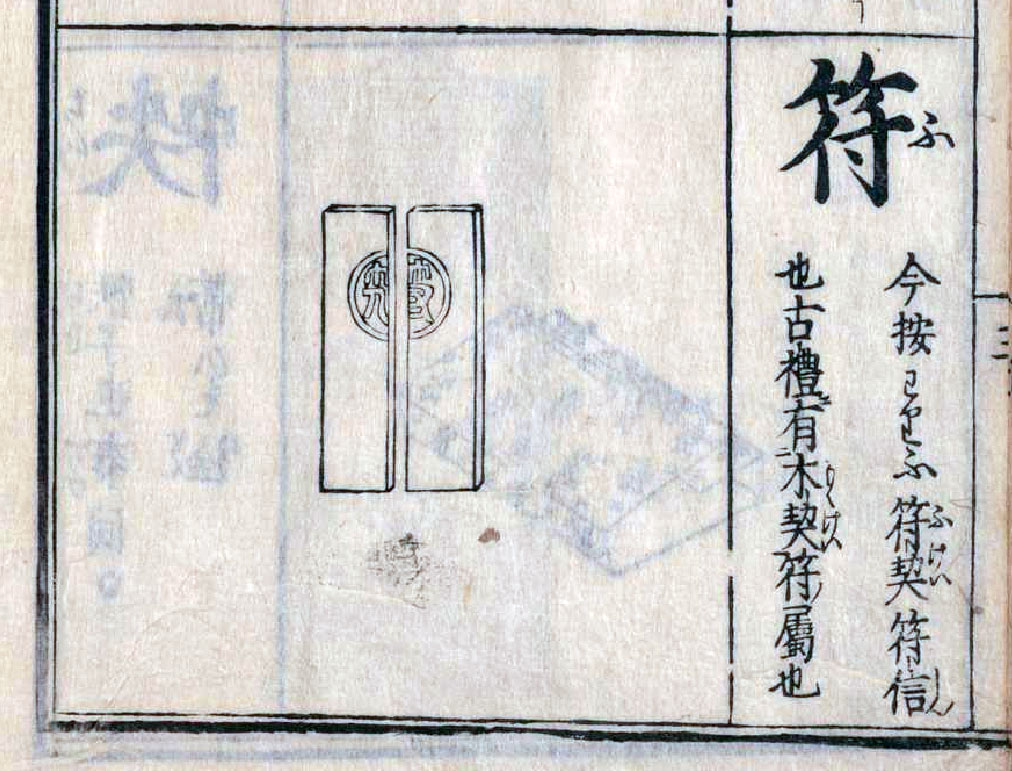 符
ふ
今按わりふ符契符信
ふけい
しん
也古禮有木契符屬也
もくけい